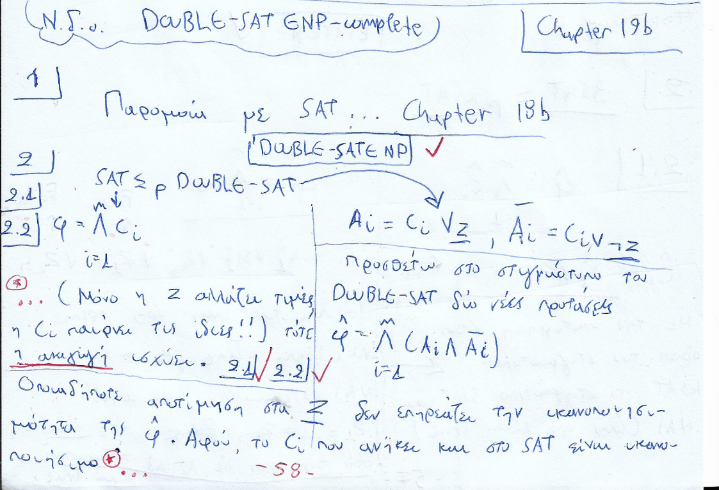 (Ν.δ.ο. DOUBLE-SAT ∈NP-complete) Chapter 19b
1
Παρομοία με SAT... Chapter 18b
DOUBLE-SAT ∈ NP ✓
2
2.1 SAT ≤p DOUBLE-SAT
2.2 φ = ⋀ Ci
m
i=1
Ai = Ci ∨ z, Āi = Ci ∨ ¬z
Προσθέτω στο στιγμιότυπο του
DOUBLE-SAT δύο νέες προτάσεις
φ̂ = ⋀ (Ai ∧ Āi)
m
i=1
* ... (Μόνο η z αλλάζει τιμές,
η Ci παίρνει τις ίδιες!!) τότε
η αναγωγή ισχύει. 2.1 ✓ 2.2 ✓
Οποιαδήποτε αποτίμηση στα z δεν επηρεάζει την ικανοποιησι-
μότητα της φ̂. Αφού, το Ci που ανήκε και στο SAT είναι ικανο-
ποιήσιμο * ...
-58-